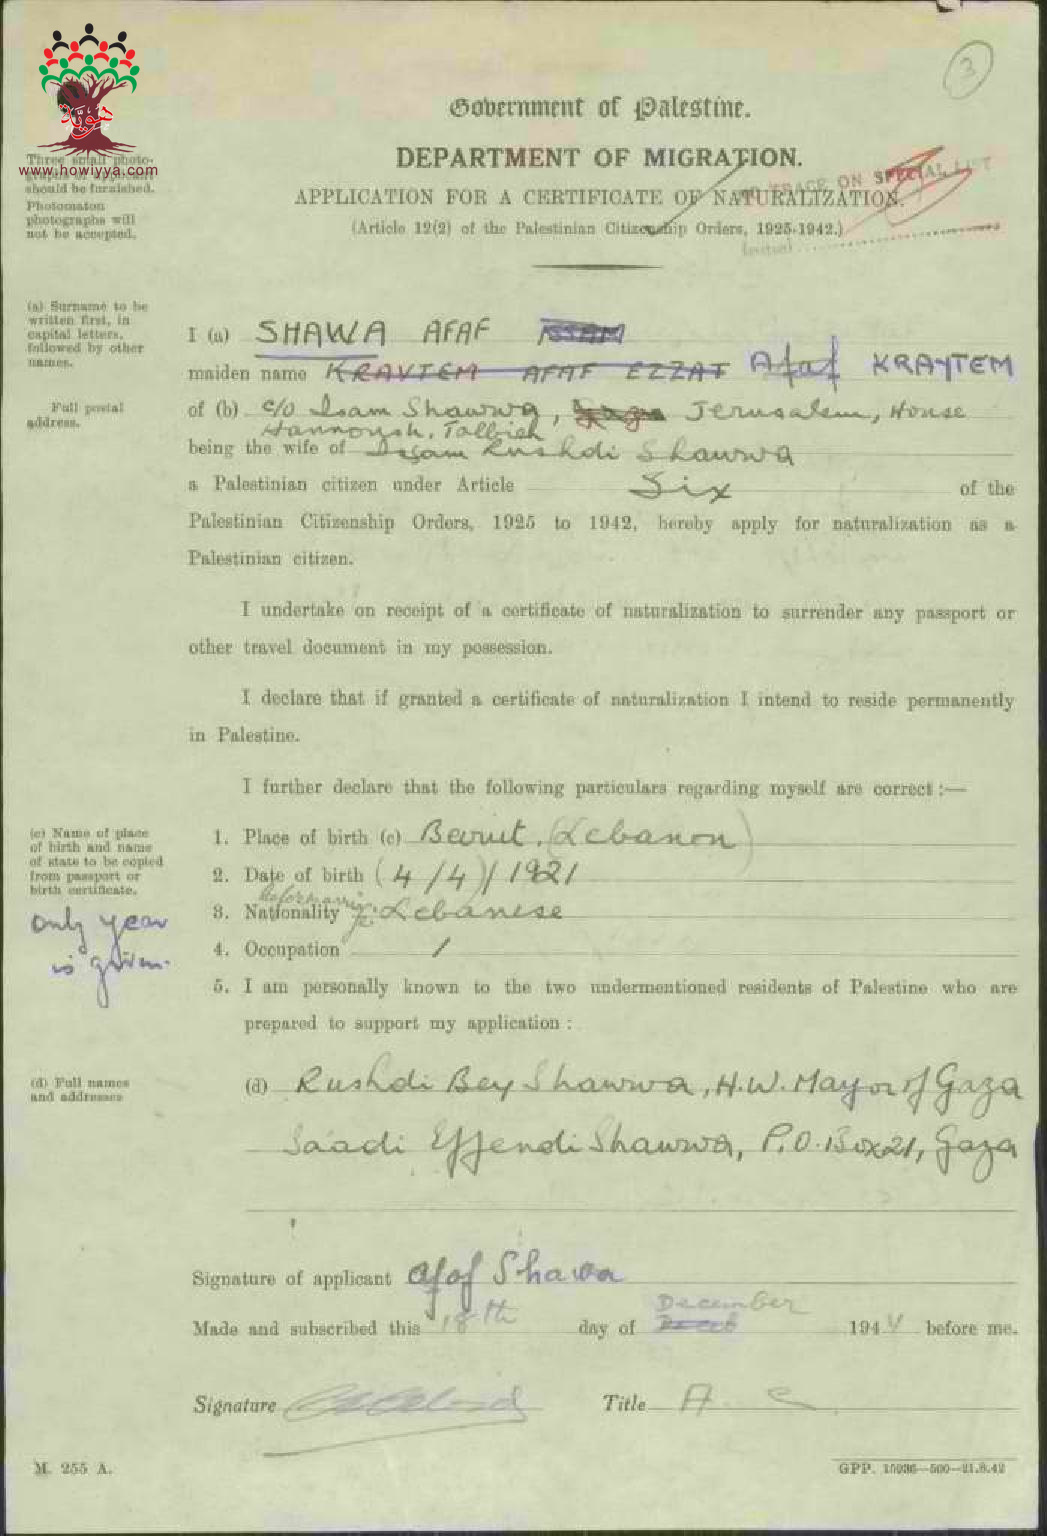 3
هوية
www.howiyya.com
Government of Palestine.
DEPARTMENT OF MIGRATION.
APPLICATION FOR A CERTIFICATE OF NATURALIZATION.
NO TRACE ON SPECIAL LIST
(Article 12(2) of the Palestinian Citizenship Orders, 1925-1942.)
Three small photo-
graphs of applicant
should be furnished.
Photomaton
photographs will
not be accepted.
(a) Surname to be
written first, in
capital letters,
followed by other
names.
I (a) SHAWA AFAF ESSAM
maiden name KRAYTEM AFAF EZZAT Afaf KRAYTEM
Full postal
address.
of (b) c/o Isam Shawwa, Gaza Jerusalem, House
Hannoush, Talbieh
being the wife of Issam Rushdi Shawwa
a Palestinian citizen under Article Six of the
Palestinian Citizenship Orders, 1925 to 1942, hereby apply for naturalization as a
Palestinian citizen.
I undertake on receipt of a certificate of naturalization to surrender any passport or
other travel document in my possession.
I declare that if granted a certificate of naturalization I intend to reside permanently
in Palestine.
I further declare that the following particulars regarding myself are correct :—
(c) Name of place
of birth and name
of state to be copied
from passport or
birth certificate.
only year
is given.
1. Place of birth (c) Beirut. (Lebanon)
2. Date of birth (4/4)/1921
before marriage
3. Nationality Lebanese
4. Occupation /
5. I am personally known to the two undermentioned residents of Palestine who are
prepared to support my application :
(d) Full names
and addresses
(d) Rushdi Bey Shawwa, H.W. Mayor of Gaza
Saadi Effendi Shawwa, P.O.Box 21, Gaza
Signature of applicant Afaf Shawa
December
Made and subscribed this 18th day of 1944 before me.
Signature Title A
M. 255 A.
GPP. 15036—500—21.8.42